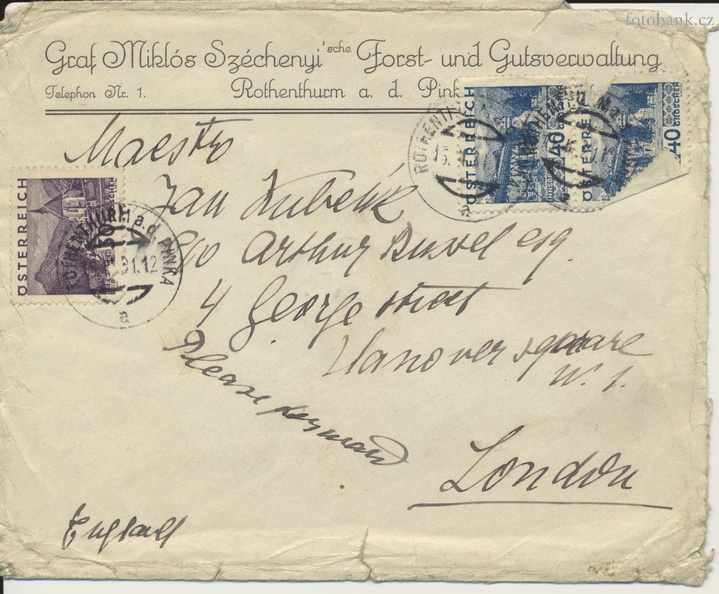 fotobank.cz
Graf Miklós Széchenyi'sche Forst- und Gutsverwaltung
Telephon Nr. 1. Rothenthurm a. d. Pink
Maestro
Jan Kubelik
c/o Arthur Duvel esq.
4 George street
Hanover square
W. 1.
Please forward
London
England
ÖSTERREICH
ROTHENTHURM a.d. PINKA
31.12
a
ÖSTERREICH
40
GROSCHEN
ÖSTERREICH
40
GROSCHEN
ROTHENTH
a